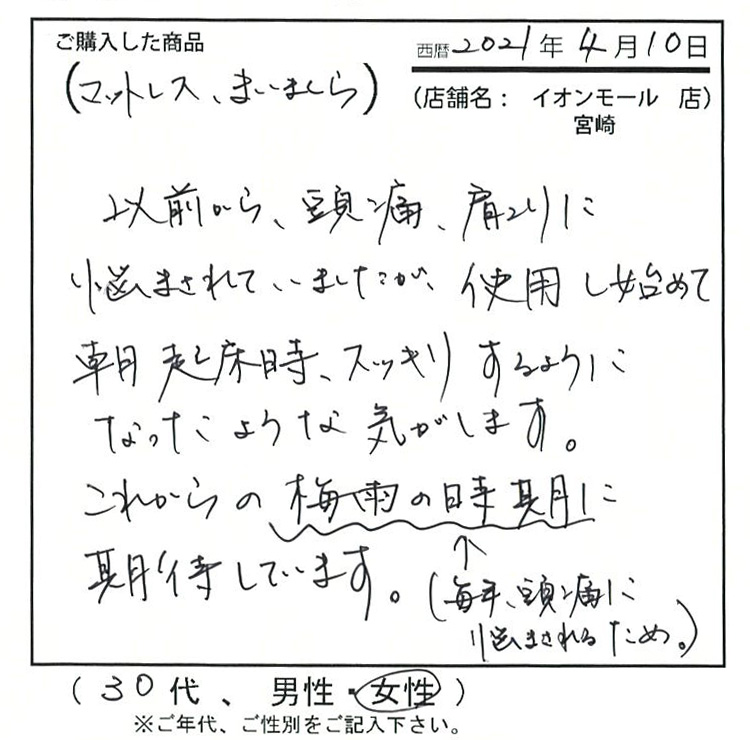 ご購入した商品
西暦 2021年 4月10日
(マットレス、まいまくら)
(店舗名: イオンモール 店)
宮崎
以前から、頭痛、肩こりに
悩まされていましたが、使用し始めて
朝起床時、スッキリするように
なったような気がします。
これからの梅雨の時期に
期待しています。
↑
(毎年、頭痛に
悩まされるため。)
(30代、男性・女性)
※ご年代、ご性別をご記入下さい。